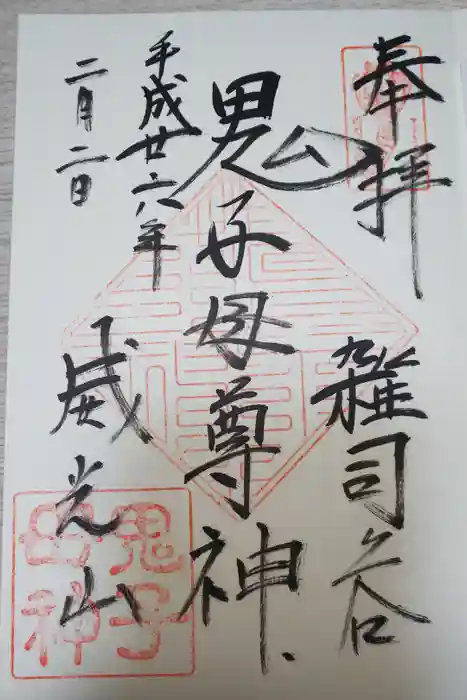 奉拝
雑司谷
鬼子母尊神
平成廿六年
二月二日
威光山
鬼子
母神